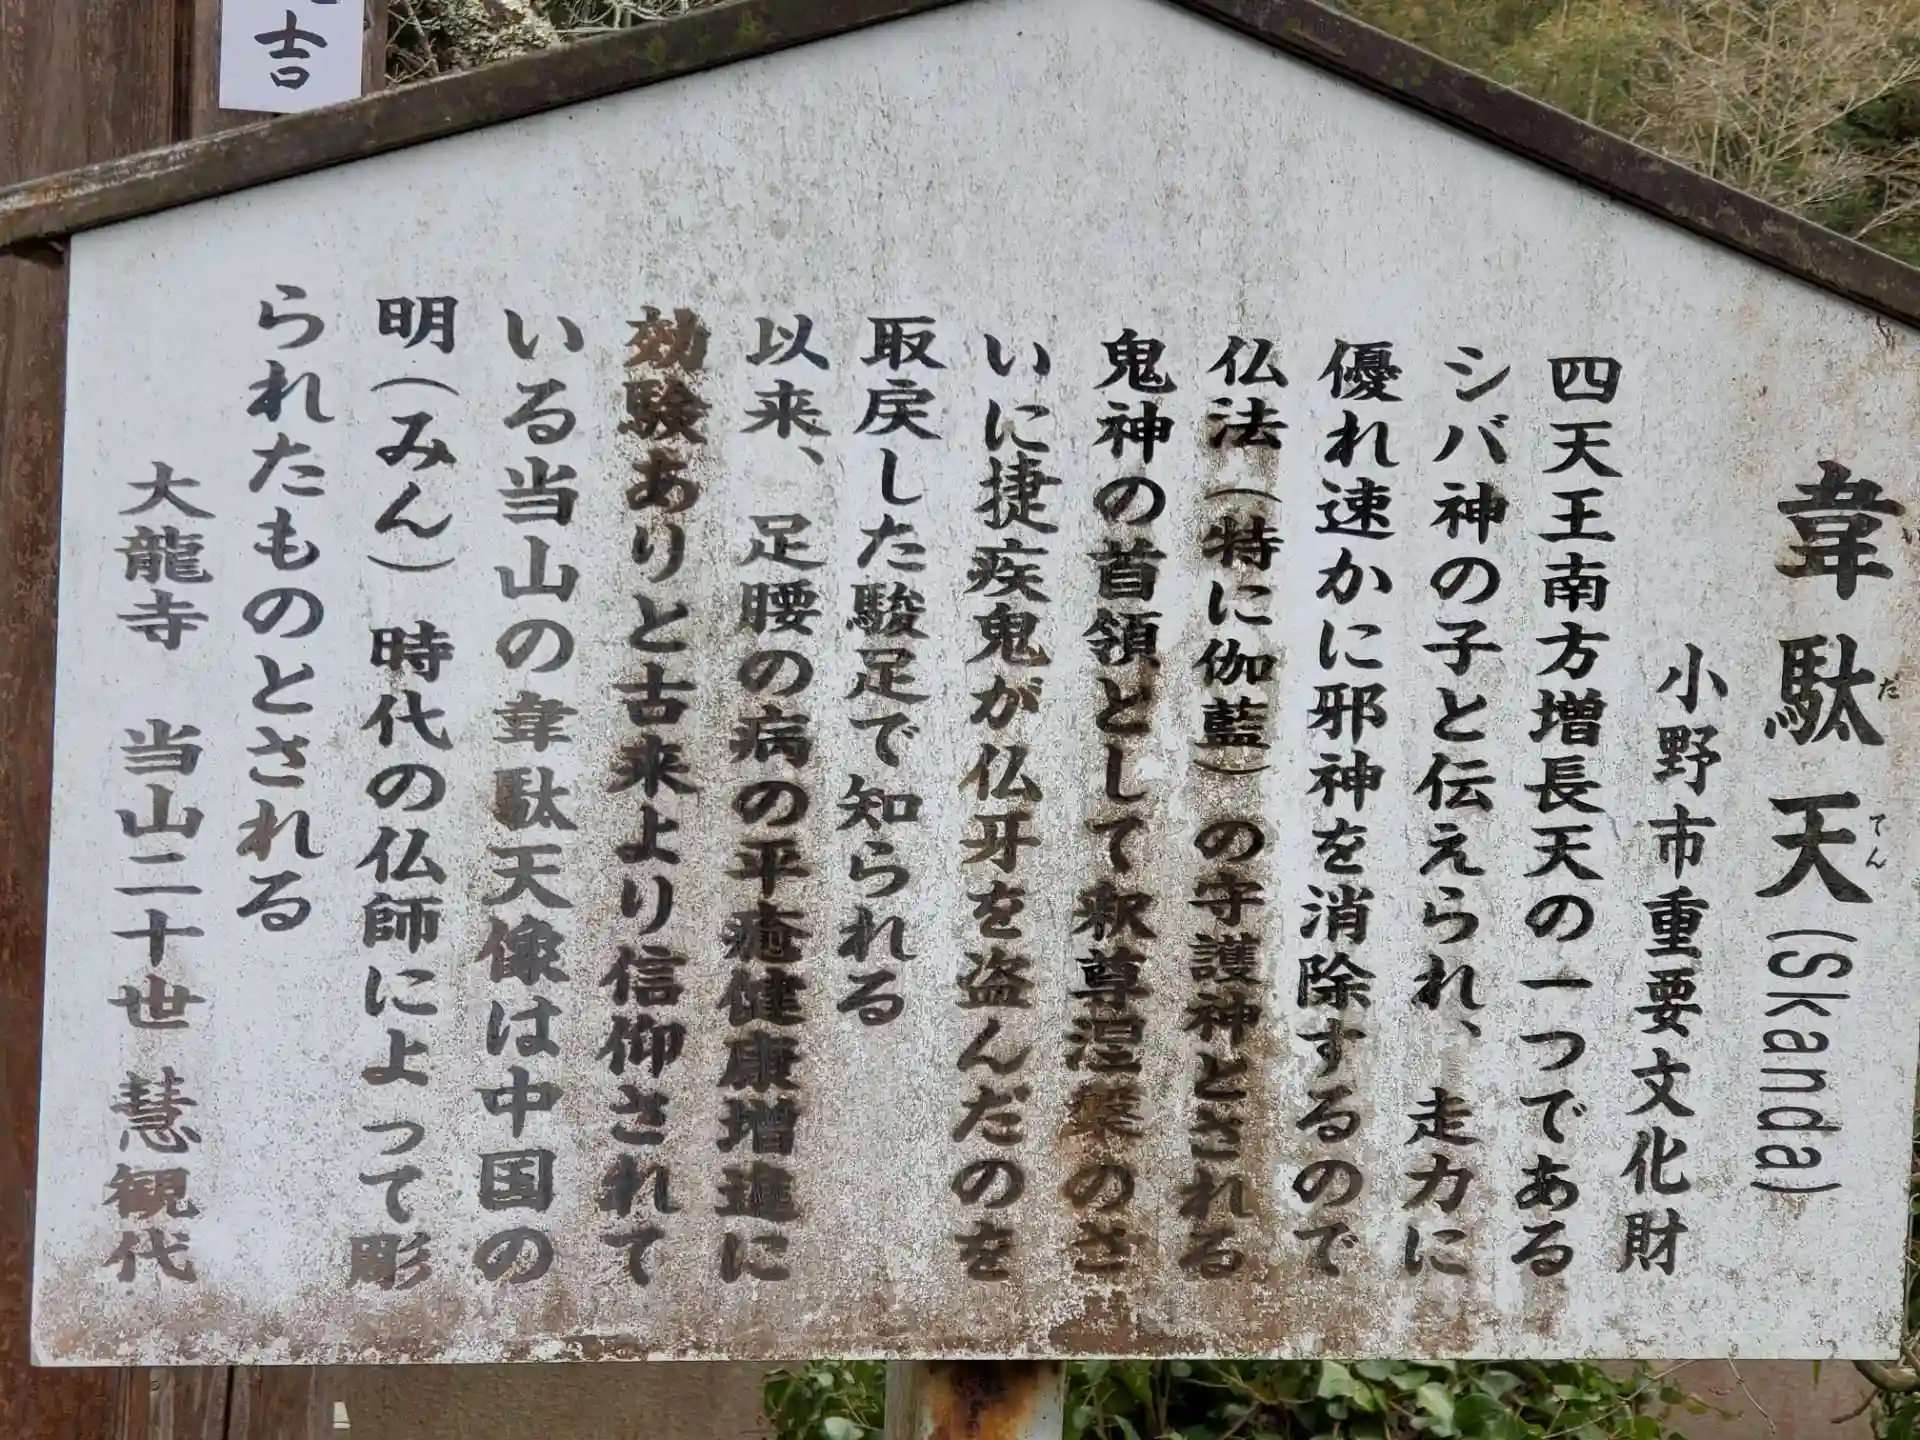 韋駄天(Skanda)
いだてん
小野市重要文化財
四天王南方増長天の一つである
シバ神の子と伝えられ、走力に
優れ速かに邪神を消除するので
仏法(特に伽藍)の守護神とされる
鬼神の首領として釈尊涅槃のさ
いに捷疾鬼が仏牙を盗んだのを
取戻した駿足で知られる
以来、足腰の病の平癒健康増進に
効験ありと古来より信仰されて
いる当山の韋駄天像は中国の
明(みん)時代の仏師によって彫
られたものとされる
大龍寺 当山二十世 慧観代
吉